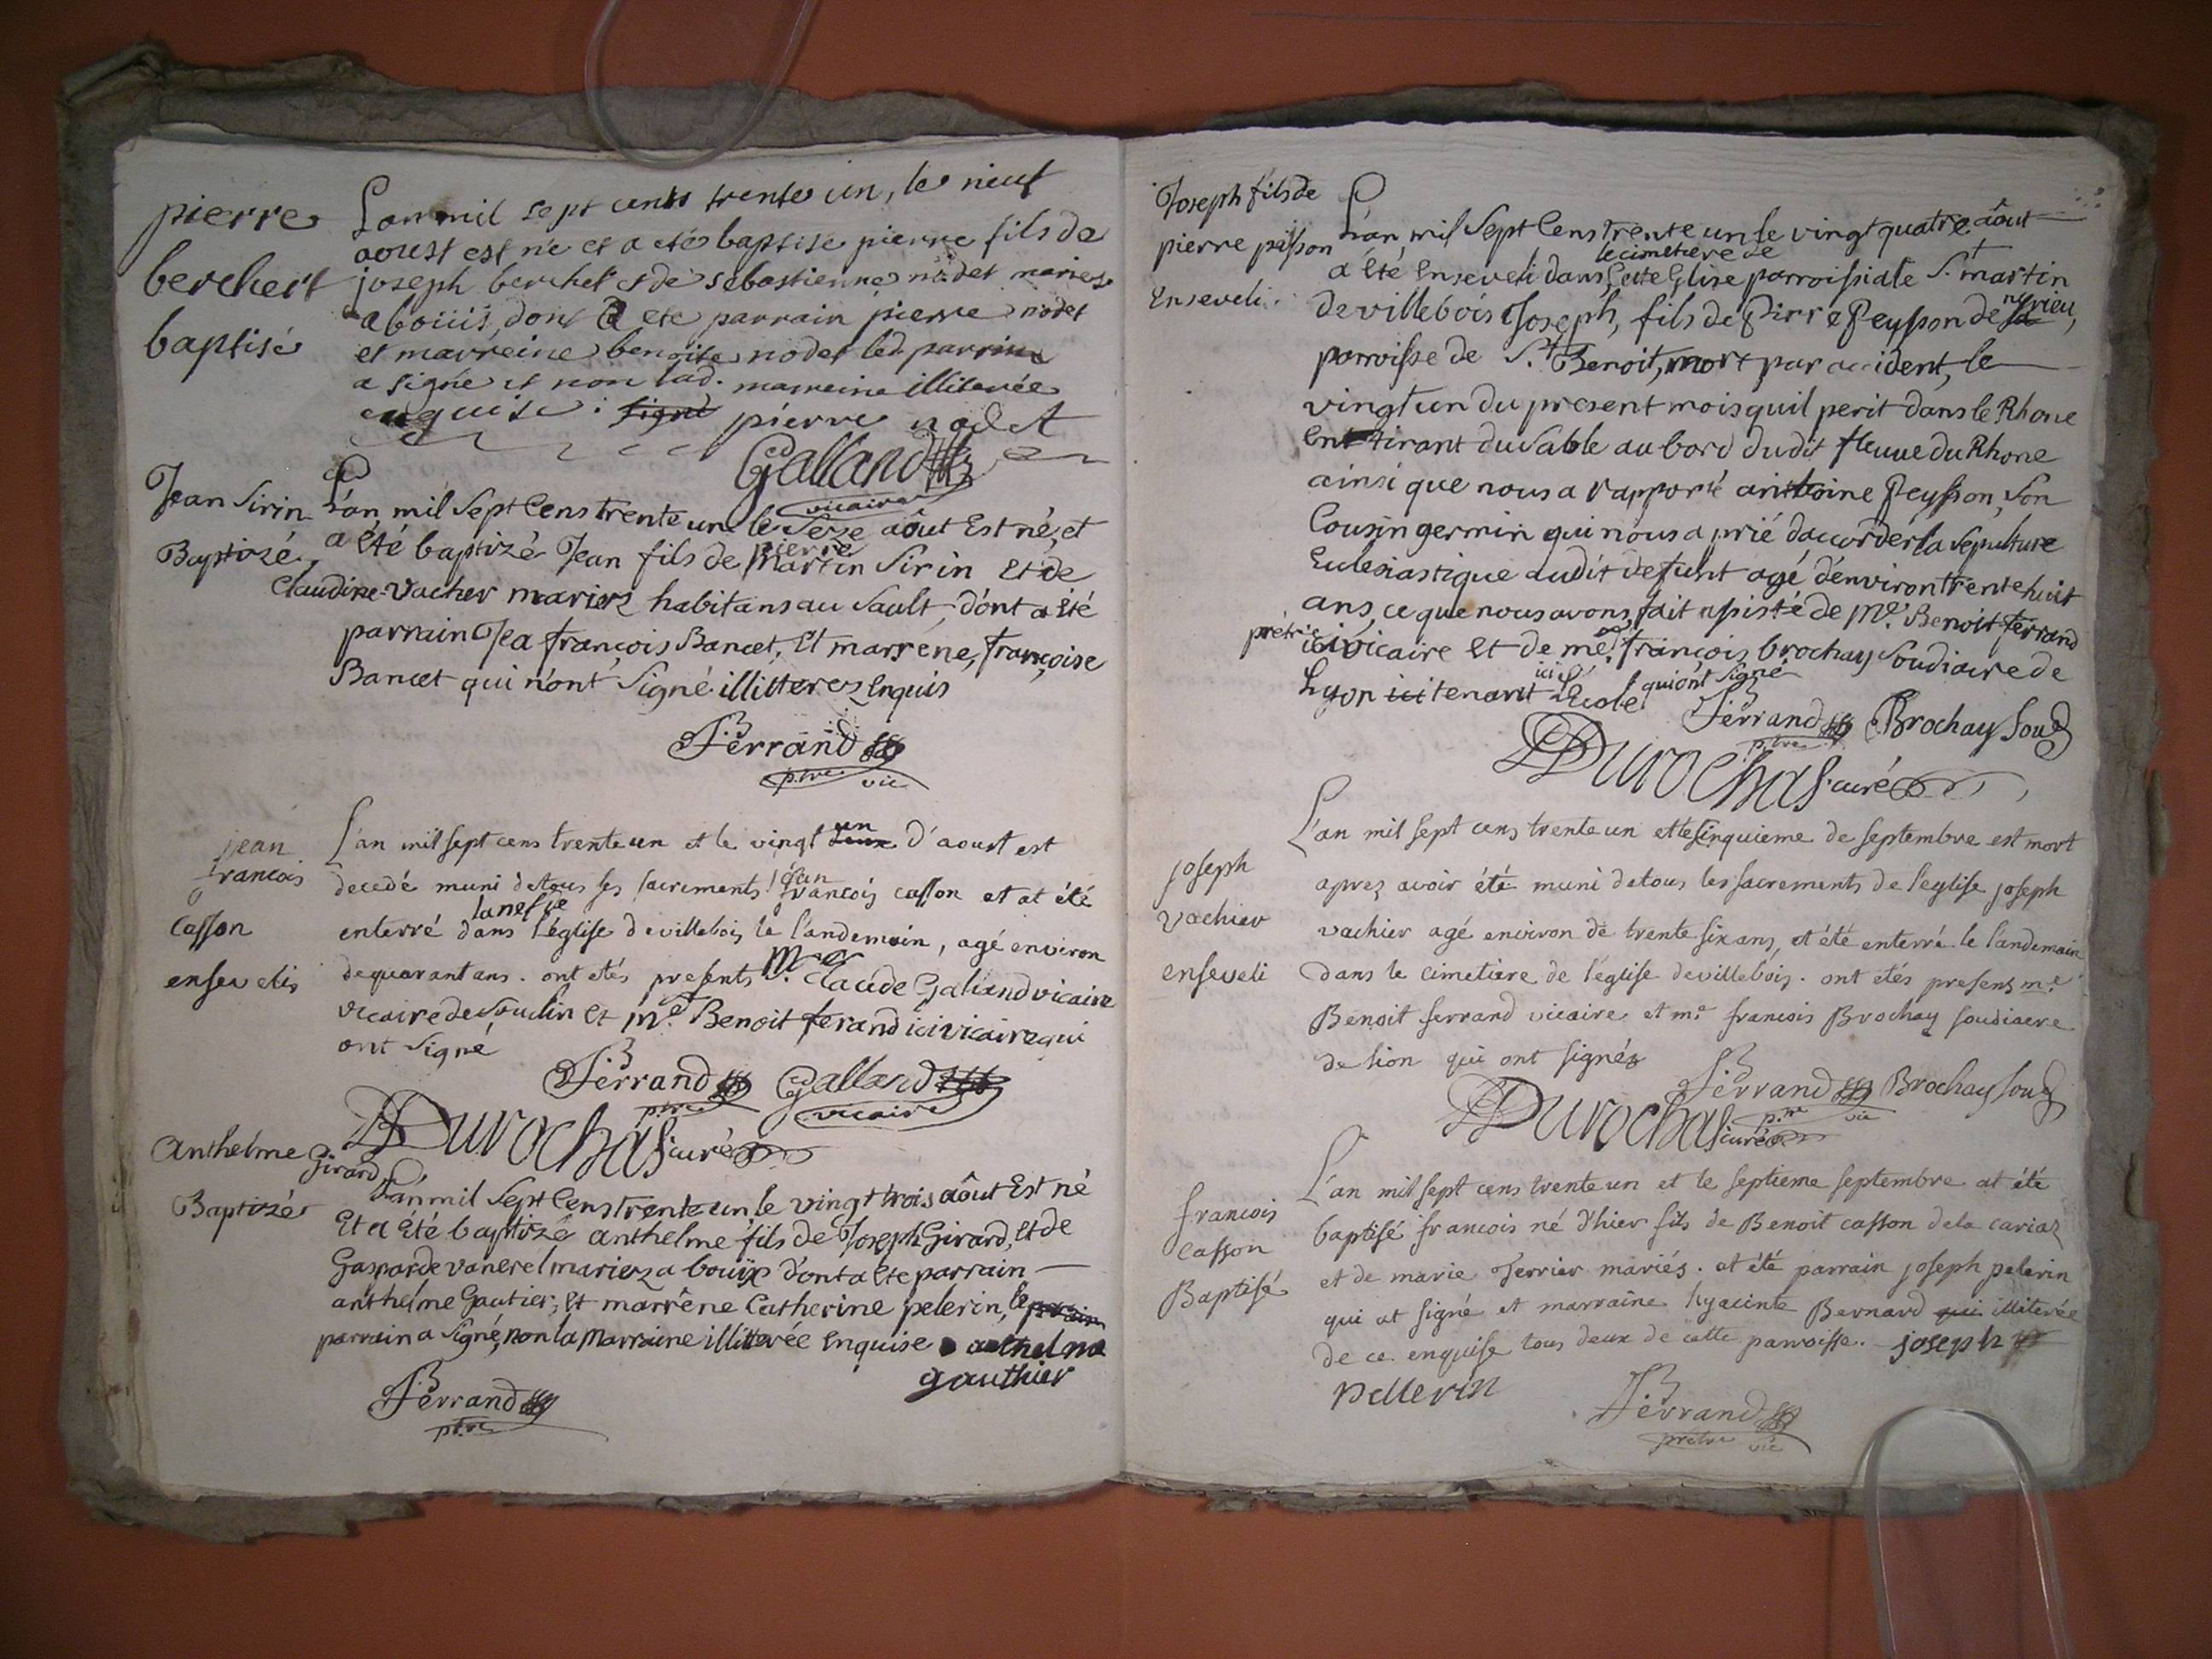 pierre
berchert
baptisé
Lan mil sept cents trente un, le neuf
aoust est né et a eté baptisé pierre fils de
joseph berchet et de sebastienne nodet mariers
a boüis, dont a ete parrain pierre nodet
et marreine benoite nodet led. parrin
a signé et non lad. marreine illiterée
enquise. signé pierre nodet
Galland
vicaire
Jean Sirin
Baptizé
L'an mil Sept Cens trente un le Seze aôut Est né, et
a été baptizé Jean fils de pierre Martin Sirin Et de
Claudine Vacher mariez habitans au Sault, d'ont a été
parrain Jea françois Bancet, Et marrene, françoise
Bancet qui n'ont Signé illitterez Enquis
Ferrand
p.tre vic
jean
francois
Casson
ensevelis
L'an mil sept cens trente un et le vingt un deux d'aoust est
decedé muni de tous ses sacrements jean francois casson et at été
enterré dans la nef de l'église de villebois le l'andemain, agé environ
de quarant ans. ont etés presents Mr. Claude Galland vicaire
vicaire de Soudin et me. Benoit ferand ici vicaire qui
ont Signé
Ferrand p.tre Galland vicaire
Durochas curé
Anthelme Girard
Baptizé
L'an mil Sept Cens trente un le vingt trois aôut Est né
Et a Eté baptizé anthelme fils de Joseph Girard, Et de
Gasparde vanerel mariez a bouïx d'ont a Ete parrain
anthelme Gautier, Et marrène Catherine pelerin, le parrain
parrain a Signé, non la Marraine illitterée Enquise anthelme
gauthier
Ferrand
ptre
Joseph fils de
pierre peisson
Enseveli
L'an mil Sept Cens trente un le vingt quatre aôut
a été Enseveli dans le cimetiere de Cette Eglise parroissiale St. martin
de villebois Joseph, fils de Pirre Peysson de nyrieu,
parroisse de St. Benoit, mort par accident, le
vingt un du present mois quil perit dans le Rhone
En tirant du Sable au bord dudit fleuve du Rhone
ainsi que nous a rapporté anthoine Peysson, Son
Cousin germin qui nous a prié d'accorder la Sépulture
Eclesiastique audit defunt agé d'environ trente huit
ans, ce que nous avons fait assisté de Me. Benoit ferrand
prétre ici vicaire et de me. françois brochay Soudiacre de
Lyon ici tenant ici L'Ecole qui ont Signé
Ferrand p.tre Brochay Soud
Durochas curé
joseph
vachier
enseveli
L'an mil sept cens trente un et le cinquieme de septembre est mort
aprez avoir été muni de tous les sacrements de l'eglise joseph
vachier agé environ de trente six ans, et été enterré le l'andemain
dans le cimetiere de l'église de villebois. ont etés presens me.
Benoit ferrand vicaire et me. francois Brochay soudiacre
de lion qui ont signéz
Ferrand p.tre vic Brochay Soud
Durochas curé
francois
Casson
Baptisé
L'an mil sept cens trente un et le septieme septembre at été
baptisé francois né d'hier fils de Benoit casson de la cariaz
et de marie Ferrier mariés. at été parrain joseph pelerin
qui at signé et marraine hyacinte Bernard qui illiterée
de ce enquise tous deux de cette parroisse. joseph
pellerin
Ferrand
prétre vic